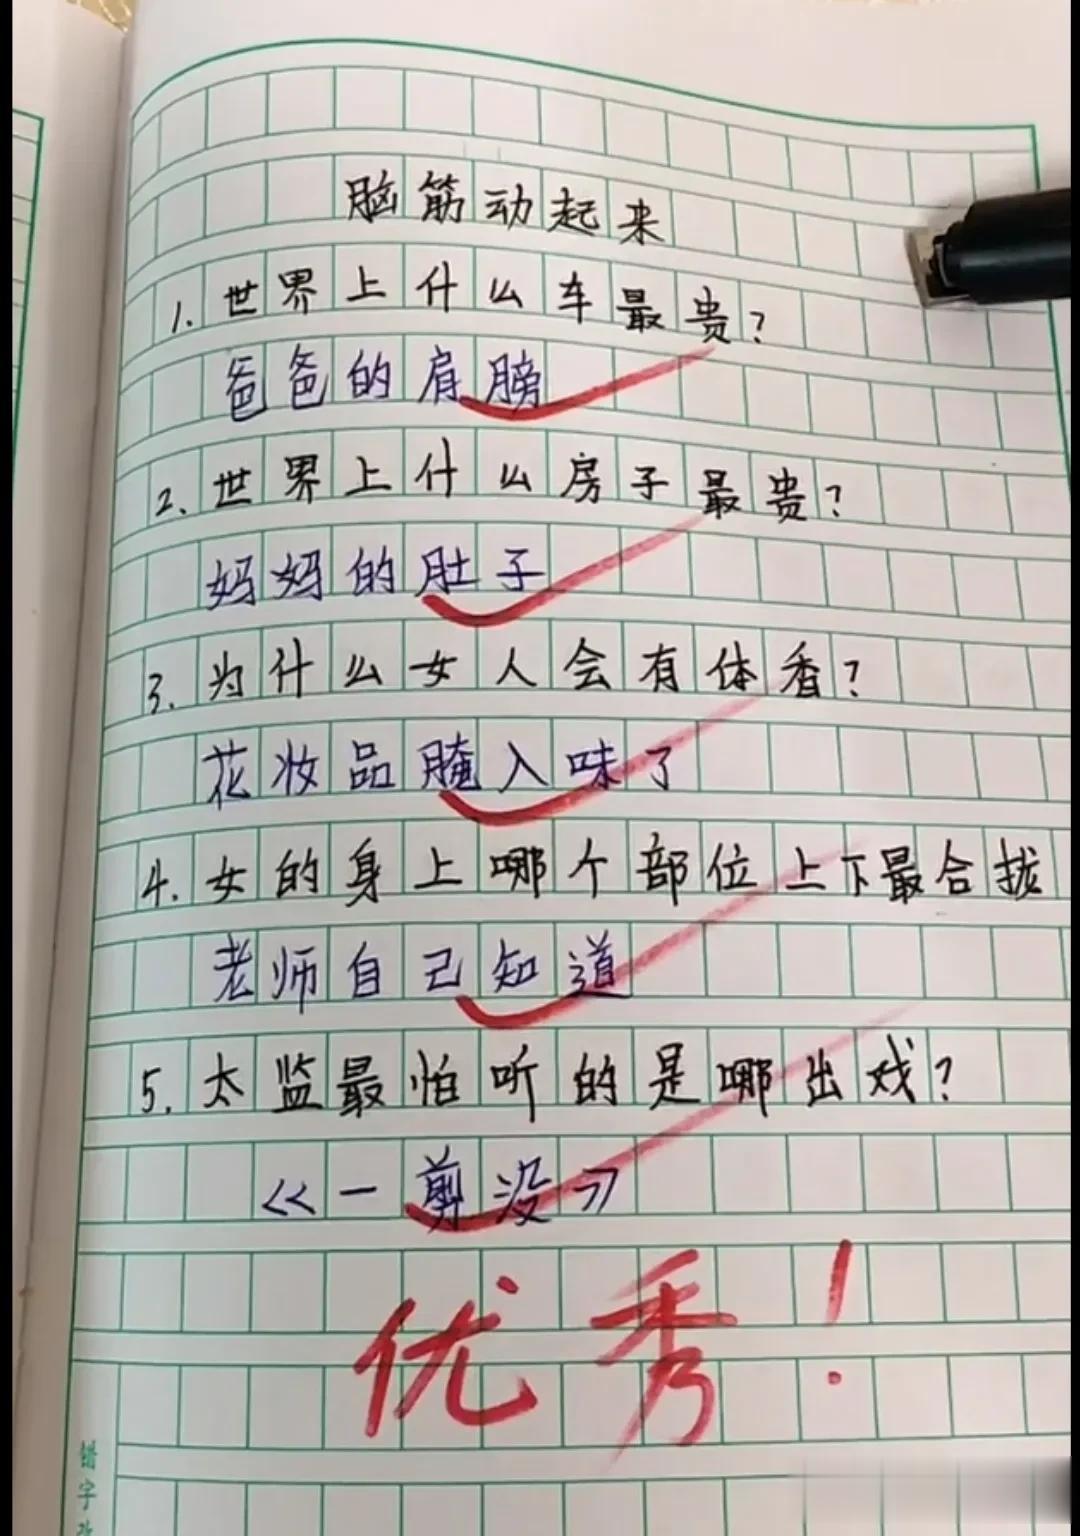 脑筋动起来
1. 世界上什么车最贵?
爸爸的肩膀
2. 世界上什么房子最贵?
妈妈的肚子
3. 为什么女人会有体香?
花妆品腌入味了
4. 女的身上哪个部位上下最合拢
老师自己知道
5. 太监最怕听的是哪出戏?
《一剪没》
优秀!
错字